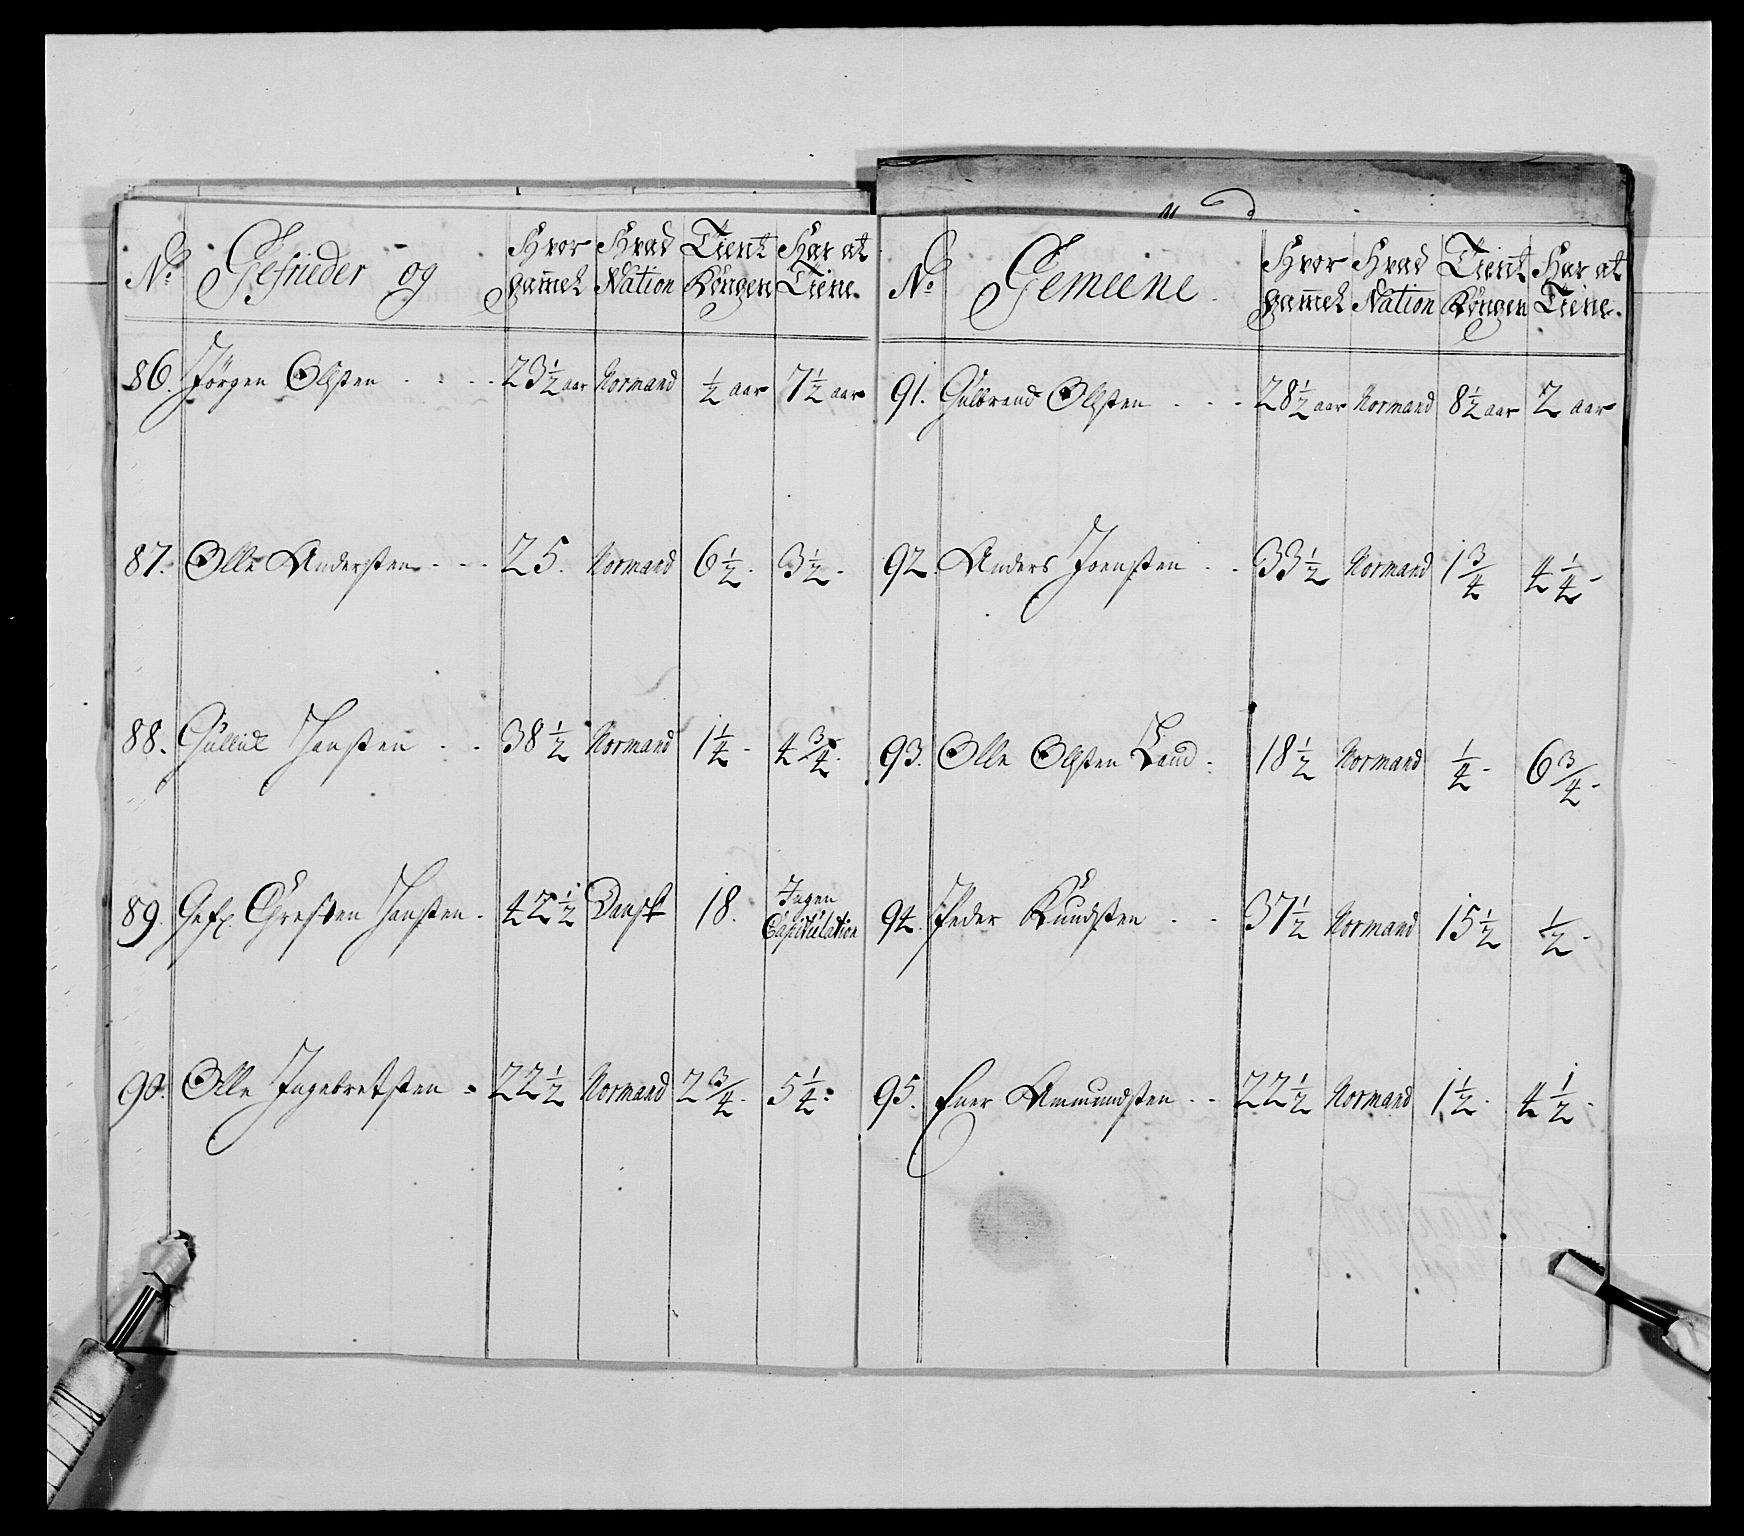 No Gefrieder og Hvor gammel Hvad Nation Tient Kongen Har at Tiene.
86. Jörgen Olsten . . . . 23 1/2 aar Normand 1/2 aar 7 1/2 aar
87. Olle Andersten . . . 25. Normand 6 1/2 . 3 1/2 .
88. Gulluk Hansten . . 38 1/2 Normand 1 1/4 . 4 3/4 .
89. Gefr. Chresten Hansten . 42 1/2 Dansk 18. Ingen Capitulation
90. Olle Ingebretsten . 22 1/2 Normand 2 3/4 . 5 1/4 .
No Gemeine . Hvor gammel Hvad Nation Tient Kongen Har at Tiene.
91. Gulbrand Olsten . . . 28 1/2 aar Normand 8 1/2 aar 2 aar
92. Anders Joensten . . 33 1/2 Normand 1 3/4 4 1/4 .
93. Olle Olsten Land . 18 1/2 Normand 1/4 . 6 3/4 .
94. Peder Knudsten . . 37 1/2 Normand 15 1/2 1/2 .
95. Ener Ammundsten . . 22 1/2 Normand 1 1/2 . 4 1/2 .